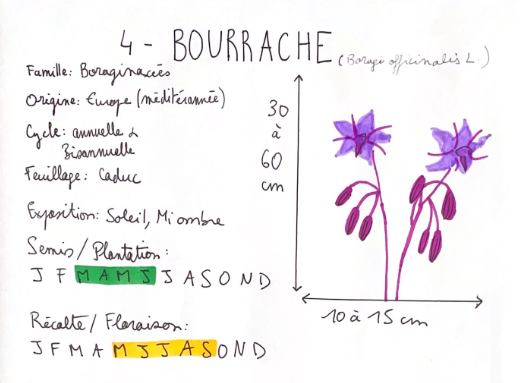 4 - BOURRACHE (Borago officinalis L.)
Famille: Boraginacées
Origine: Europe (méditérannée)
Cycle: annuelle &
Bisannuelle
Feuillage: Caduc
Exposition: Soleil, Mi ombre
Semis/Plantation:
J F M A M J J A S O N D
Récolte/Floraison:
J F M A M J J A S O N D
30
à
60
cm
10 à 15 cm